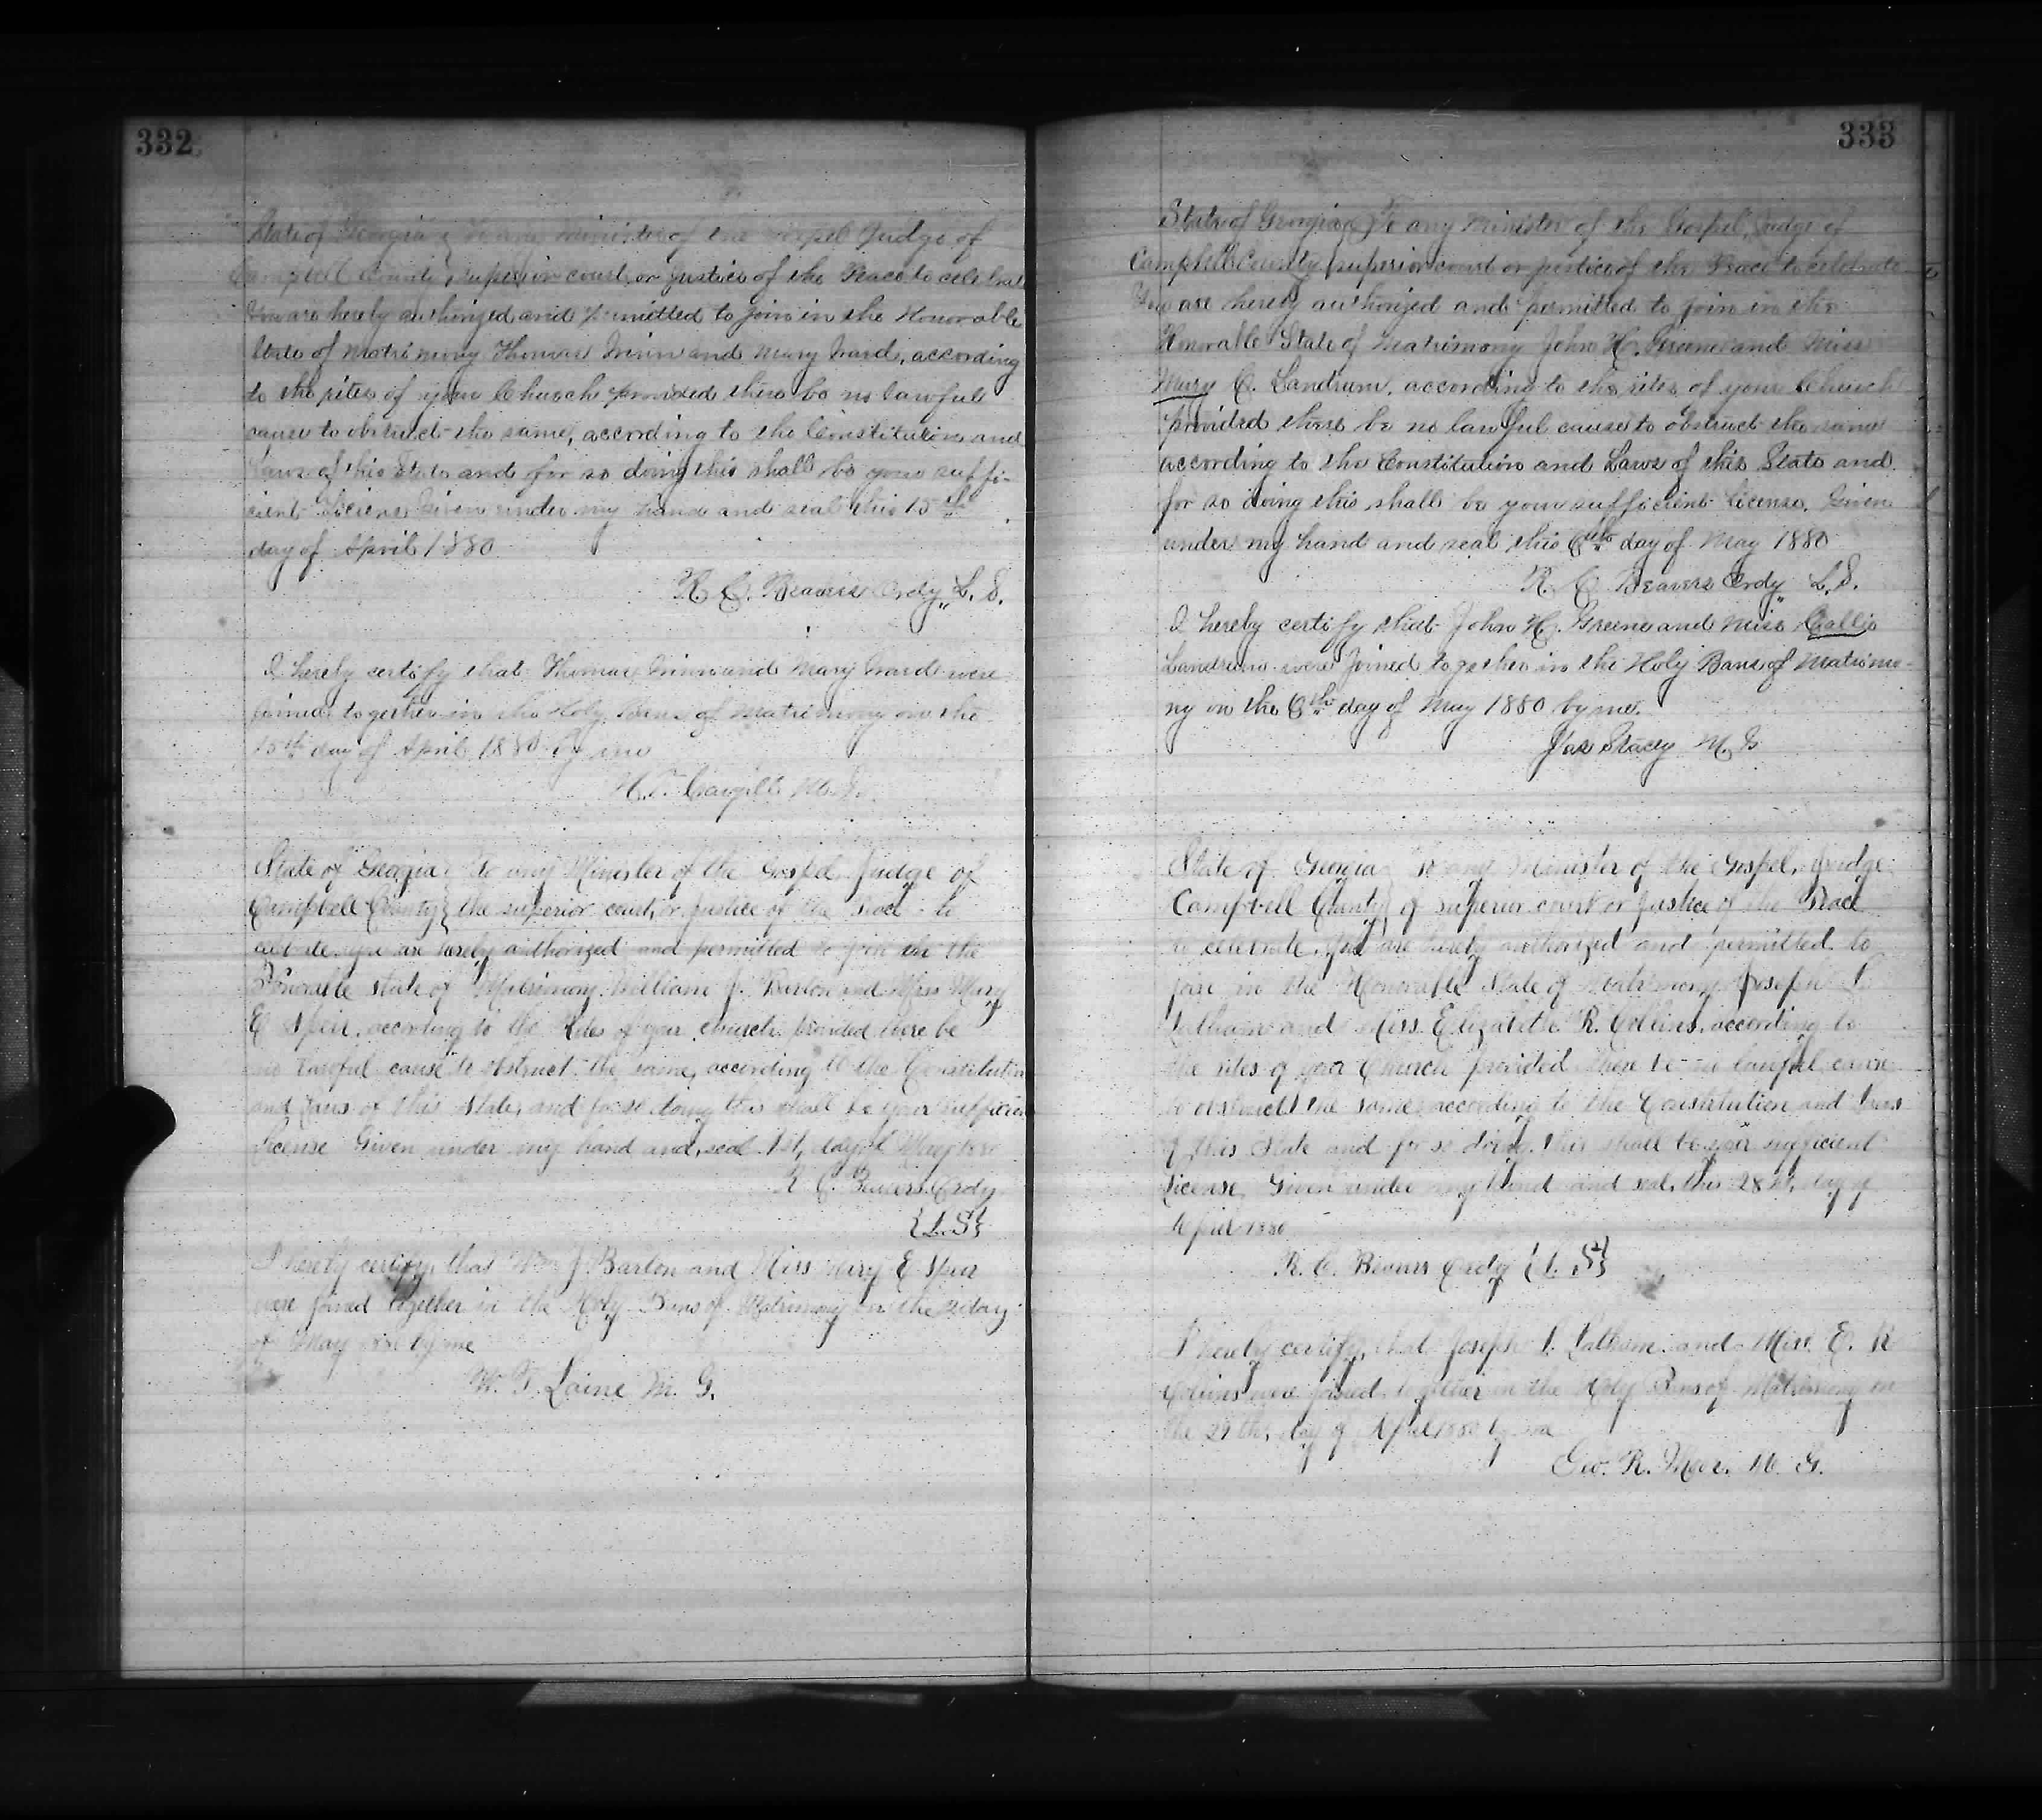 332
State of Georgia } To any Minister of the Gospel Judge of
Campbell County } superior court, or justice of the Peace to celebrate
You are hereby authorized and permitted to join in the Honorable
State of Matrimony Thomas and Mary Ward, according
to the rites of your Church provided there be no lawful
cause to obstruct the same, according to the Constitution and
Laws of this State and for so doing this shall be your suffi-
cient License Given under my hand and seal this 15th
day of April 1880
R. C. Beavers Ordy L. S.
I hereby certify that Thomas and Mary Ward were
joined together in the Holy Bans of Matrimony on the
15th day of April 1880 by me
M. G.
State of Georgia } To any Minister of the Gospel Judge of
Campbell County } the superior court, or justice of the Peace to
celebrate you are hereby authorized and permitted to join in the
Honorable state of Matrimony William J. Barton and Miss Mary
E Speir, according to the Rites of your church provided there be
no lawful cause to obstruct the same, according to the Constitution
and Laws of this State, and for so doing this shall be your sufficient
License Given under my hand and seal 1st, day of May 1880
R C. Beavers Ordy
{L.S}
I hereby certify that Wm J Barton and Miss Mary E Speir
were joined together in the Holy Bans of Matrimony on the 2 day
of May 1880 by me
W. F. Laine M. G.
333
State of Georgia } To any Minister of the Gospel, Judge of
Campbell County } superior court or justice of the Peace to celebrate
You are hereby authorized and permitted to join in the
Honorable State of Matrimony John H. Greene and Miss
Mary C. Landrum, according to the rites of your Church
provided there be no lawful cause to obstruct the same
according to the Constitution and Laws of this State and
for so doing this shall be your sufficient license. Given
under my hand and seal this 6th day of May 1880
R. C. Beavers Ordy L. S.
I hereby certify that John H. Greene and Miss Callie
Landrum were joined together in the Holy Bans of Matrimo-
ny on the 6th day of May 1880 by me.
Jas Stacey M. G
State of Georgia } To any Minister of the Gospel, Judge
Campbell County } of superior court or justice of the Peace
to celebrate. You are hereby authorized and permitted to
join in the Honorable State of Matrimony Joseph L
Latham and Miss. Elizabeth R. Collins, according to
the rites of your Church provided there be no lawful cause
to obstruct the same, according to the Constitution and Laws
of this State and for so doing this shall be your sufficient
License, Given under my Hand and seal, this 28th, day of
April 1880
R. C. Beavers Ordy {L. S}
I hereby certify, that Joseph L. Latham and Miss. E. R
Collins were joined together in the Holy Bans of Matrimony on
the 29th, day of April 1880 by me
Geo. R. M. G.